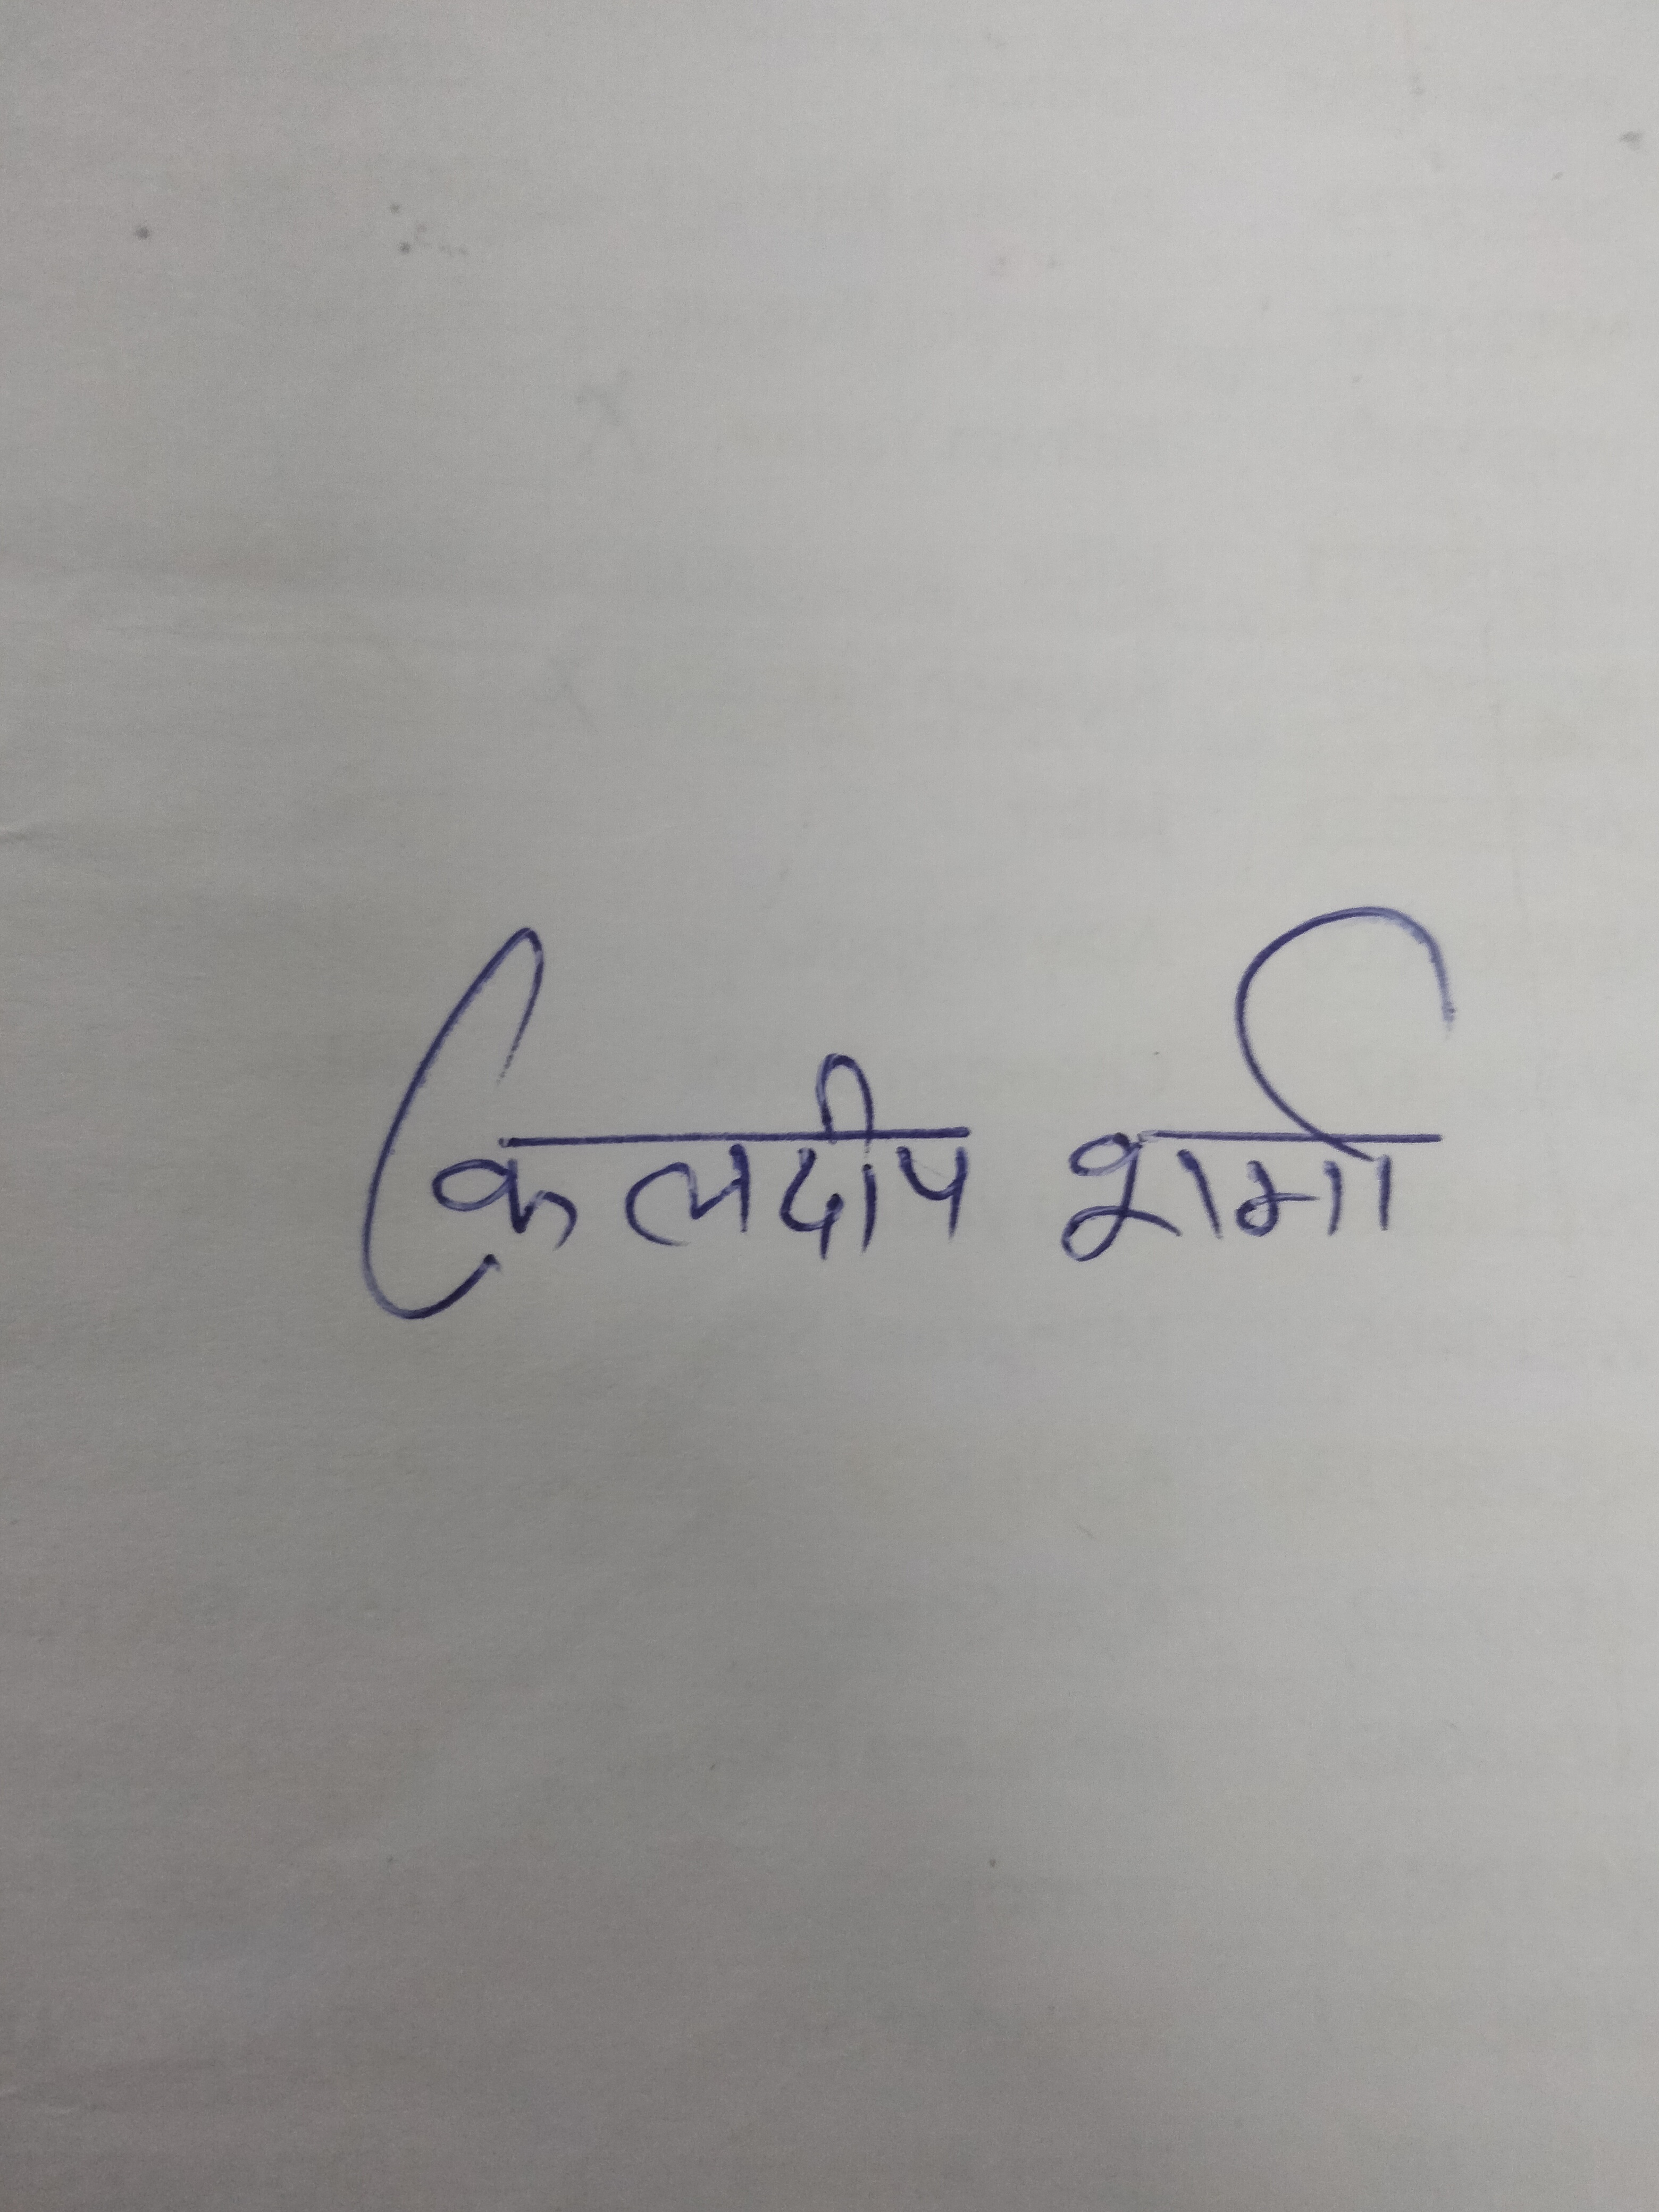 कुलदीप शर्मा